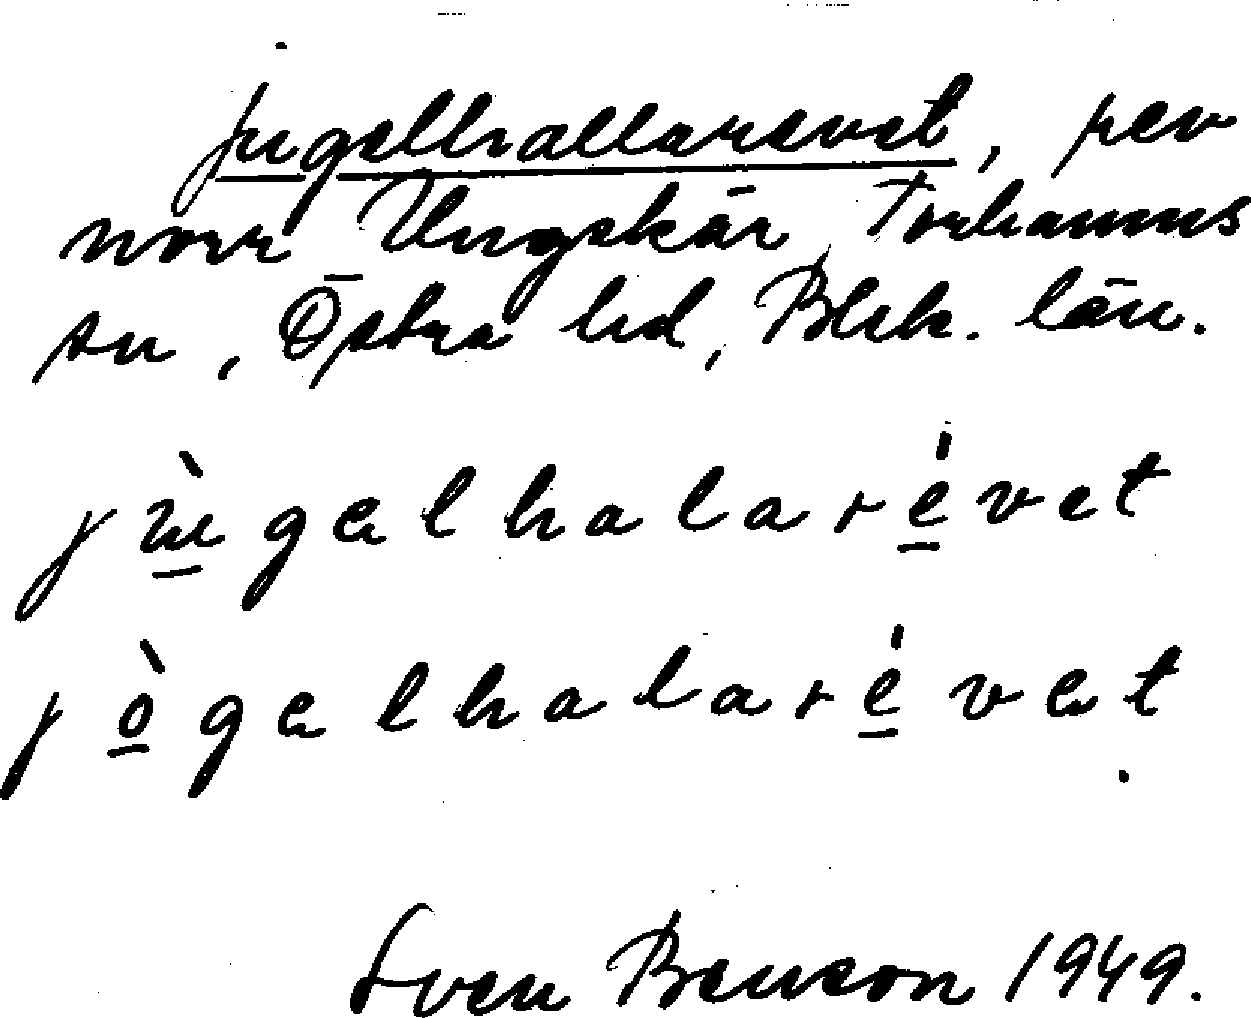 Jugelhallarevet, rev
norr Ungskär, Torhamns
sn, Östra hd, Blek. län.
jùgelhalarévet
jògelhalarévet
Sven Benson 1949.